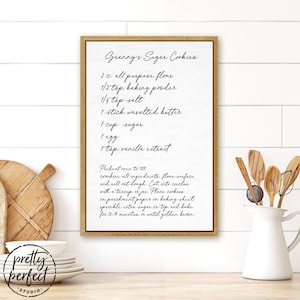 Granny's Sugar Cookies
2 c. all purpose flour
1/2 tsp baking powder
1/4 tsp salt
1 stick unsalted butter
1 cup sugar
1 egg
1 tsp vanilla extract
Preheat oven to 350
combine all ingredients, flour surface
and roll out dough. Cut into circles
with a teacup or jar. Place cookies
on parchment paper in baking sheet
sprinkle extra sugar on top and bake
for 12-14 minutes or until golden brown.
pretty
perfect
STUDIO